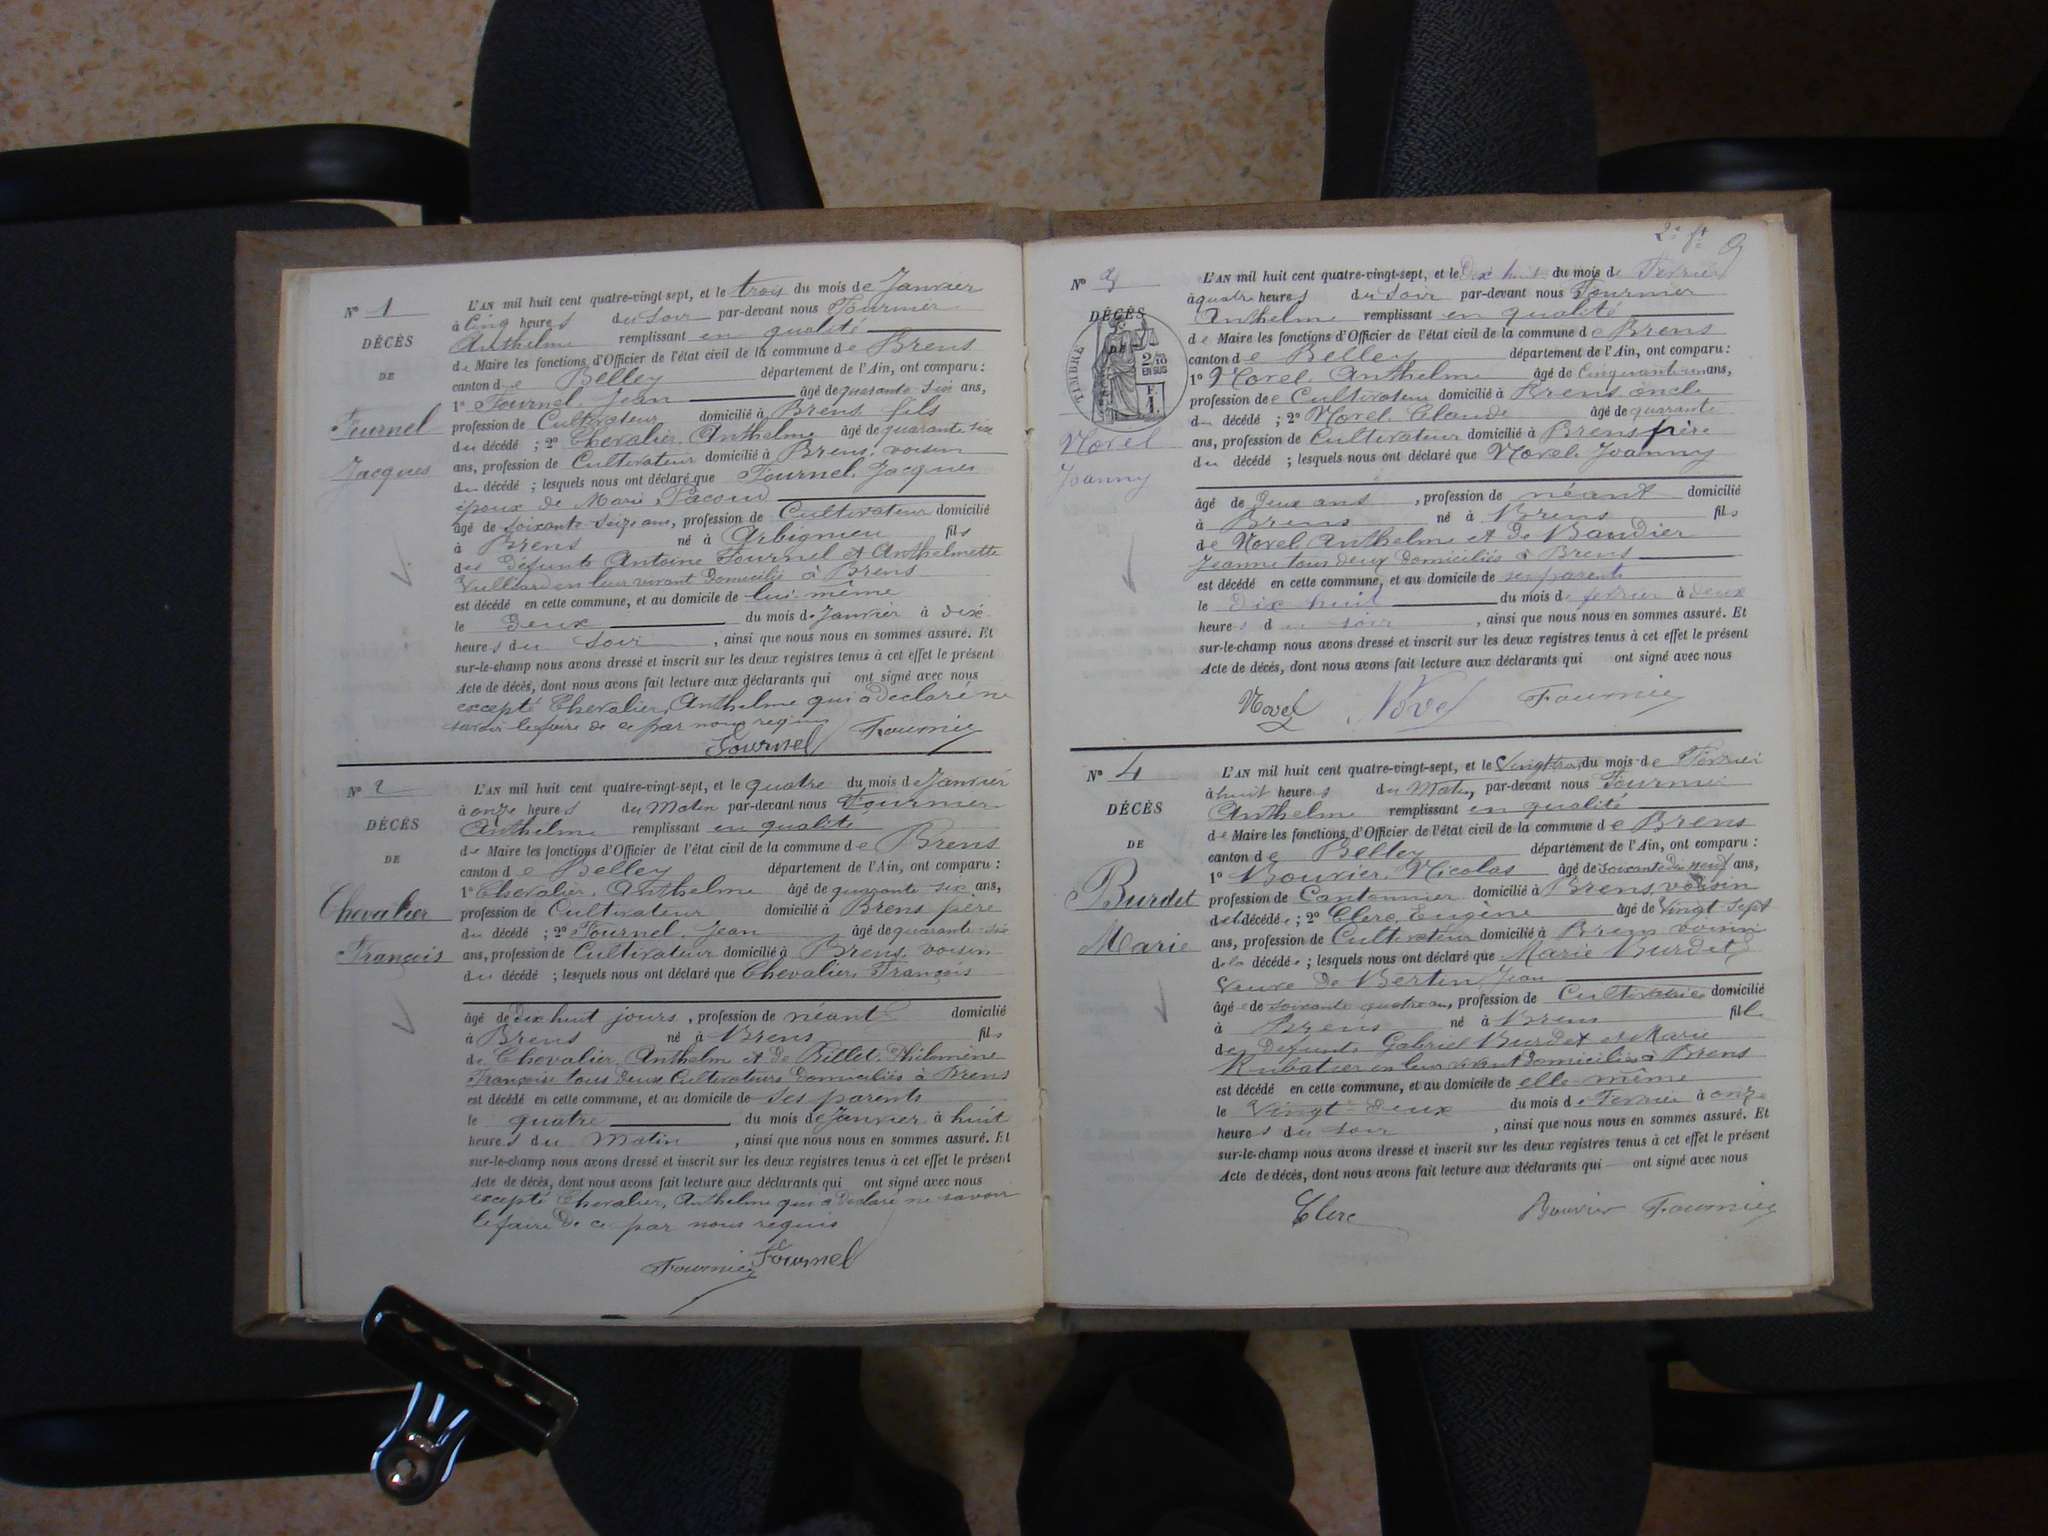 N° 1
DÉCÈS
DE
Fournel
Jacques
L'AN mil huit cent quatre-vingt-sept, et le trois du mois de Janvier
à Cinq heures du Soir par-devant nous Fournier
Anthelme remplissant en qualité
de Maire les fonctions d'Officier de l'état civil de la commune de Brens
canton de Belley département de l'Ain, ont comparu :
1° Fournel Jean âgé de quarante six ans,
profession de Cultivateur domicilié à Brens fils
du décédé ; 2° Chevalier Anthelme âgé de quarante six
ans, profession de Cultivateur domicilié à Brens, voisin
du décédé ; lesquels nous ont déclaré que Fournel Jacques
époux de Marie Pacoud
âgé de soixante seize ans, profession de Cultivateur domicilié
à Brens né à Arbignieu fils
des défunts Antoine Fournel et Anthelmette
Vuilliard en leur vivant domiciliés à Brens
est décédé en cette commune, et au domicile de lui-même
le Deux du mois de Janvier à dix
heures du soir, ainsi que nous nous en sommes assuré. Et
sur-le-champ nous avons dressé et inscrit sur les deux registres tenus à cet effet le présent
Acte de décès, dont nous avons fait lecture aux déclarants qui ont signé avec nous
excepté Chevalier Anthelme qui a déclaré ne
savoir le faire de ce par nous requis
Fournel Fournier
N° 2
DÉCÈS
DE
Chevalier
François
L'AN mil huit cent quatre-vingt-sept, et le quatre du mois de Janvier
à onze heures du Matin par-devant nous Fournier
Anthelme remplissant en qualité
de Maire les fonctions d'Officier de l'état civil de la commune de Brens
canton de Belley département de l'Ain, ont comparu :
1° Chevalier Anthelme âgé de quarante six ans,
profession de Cultivateur domicilié à Brens père
du décédé ; 2° Fournel Jean âgé de quarante-six
ans, profession de Cultivateur domicilié à Brens, voisin
du décédé ; lesquels nous ont déclaré que Chevalier François
âgé de dix huit jours, profession de néant domicilié
à Brens né à Brens fils
de Chevalier Anthelm et de Billet Philomène
Françoise tous deux Cultivateurs domiciliés à Brens
est décédé en cette commune, et au domicile de ses parents
le quatre du mois de Janvier à huit
heures du Matin, ainsi que nous nous en sommes assuré. Et
sur-le-champ nous avons dressé et inscrit sur les deux registres tenus à cet effet le présent
Acte de décès, dont nous avons fait lecture aux déclarants qui ont signé avec nous
excepté Chevalier Anthelme qui a déclaré ne savoir
le faire de ce par nous requis
Fournier Fournel
N° 3
DÉCÈS
DE
TIMBRE
2/10
EN SUS
F.
1.
Morel
Joanny
L'AN mil huit cent quatre-vingt-sept, et le Dix huit du mois de Février
à quatre heures du Soir par-devant nous Fournier
Anthelme remplissant en qualité
de Maire les fonctions d'Officier de l'état civil de la commune de Brens
canton de Belley département de l'Ain, ont comparu :
1° Morel Anthelme âgé de Cinquante un ans,
profession de Cultivateur domicilié à Brens oncle
du décédé ; 2° Morel Claude âgé de quarante
ans, profession de Cultivateur domicilié à Brens
du décédé ; lesquels nous ont déclaré que Morel Joanny
âgé de deux ans, profession de néant domicilié
à Brens né à Brens fils
de Morel Anthelme et de Baudier
Jeanne tous deux domiciliés à Brens
est décédé en cette commune, et au domicile de ses parents
le dix huit du mois de février à deux
heures du soir, ainsi que nous nous en sommes assuré. Et
sur-le-champ nous avons dressé et inscrit sur les deux registres tenus à cet effet le présent
Acte de décès, dont nous avons fait lecture aux déclarants qui ont signé avec nous
Morel Morel Fournier
N° 4
DÉCÈS
DE
Burdet
Marie
L'AN mil huit cent quatre-vingt-sept, et le Vingt trois du mois de Février
à huit heures du Matin, par-devant nous Fournier
Anthelme remplissant en qualité
de Maire les fonctions d'Officier de l'état civil de la commune de Brens
canton de Belley département de l'Ain, ont comparu :
1° Bouvier Nicolas âgé de soixante dix neuf ans,
profession de Cantonnier domicilié à Brens, voisin
de la décédée ; 2° Clerc Eugène âgé de Vingt sept
ans, profession de Cultivateur domicilié à Brens voisin
de la décédée ; lesquels nous ont déclaré que Marie Burdet
Veuve de Bertin Jean
âgée de soixante quatre ans, profession de Cultivatrice domicilié
à Brens né à Brens fille
des défunts Gabriel Burdet et Marie
en leur vivant domiciliés à Brens
est décédé en cette commune, et au domicile de elle-même
le Vingt-deux du mois de Février à onze
heures du soir, ainsi que nous nous en sommes assuré. Et
sur-le-champ nous avons dressé et inscrit sur les deux registres tenus à cet effet le présent
Acte de décès, dont nous avons fait lecture aux déclarants qui ont signé avec nous
Clerc Bouvier Fournier